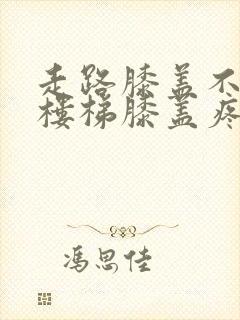 走路膝盖不
楼梯膝盖疼
冯思佳